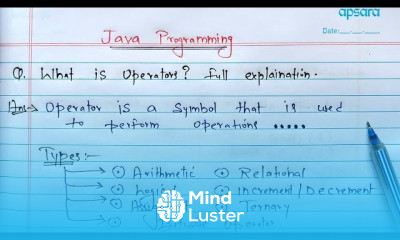 apsara
Date:
Java Programming
Q. What is Operators? full explaination.
Ans→ Operator is a Symbol that is used
to perform operations .....
Types:-
Arithmetic Relational
Logical Increment/Decrement
Ternary
Mind
Luster